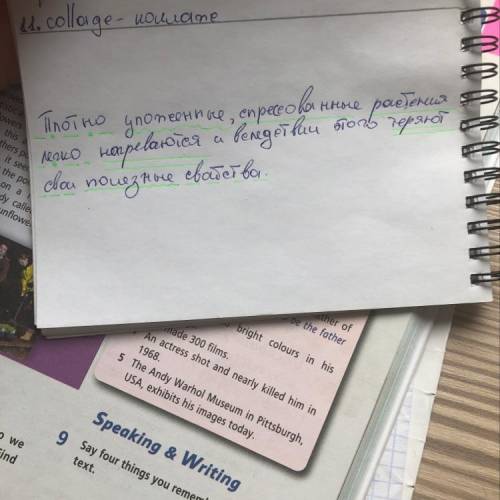 11. collage - коллаже
Плотно уложенные, спресованные растения
легко нагреваются и вследствии этого теряют
свои полезные свойства.
this
it se
the po
on a
dy calle
unflow
be the father
bright colours in his
made 300 films.
An actress shot and nearly killed him in
1968.
5 The Andy Warhol Museum in Pittsburgh,
USA, exhibits his images today.
Speaking & Writing
9 Say four things you remem
text.
o we
find